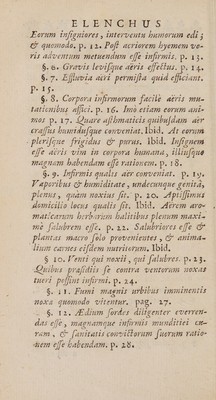 ELENCHUS
Eorum insigniores, interventu humorum edi;
& quomodo. p. 12. Post acriorem hyemem vo-
ris adventum metuendum esse infirmis. p. 13.
§. 6. Gravis levisque aëris effectus. p. 14.
§. 7. Effluvia aëri permista quid efficiant.
p. 15.
§. 8. Corpora infirmorum facilè aëris mu-
tationibus affici. p. 16. Imò etiam eorum ani-
mos p. 17. Quare asthmaticis quibusdam aër
crassus humidusque conveniat. Ibid. At eorum
plerisque frigidus & purus. Ibid. Insignem
esse aëris vim in corpora humana, illiusque
magnam habendam esse rationem. p. 18.
§. 9. Infirmis qualis aër conveniat. p. 19.
Vaporibus & humiditate, undecunque genitâ,
plenus, quàm noxius sit. p. 20. Aptissimus
domicilio locus qualis sit. Ibid. Aërem aro-
maticarum herbarum halitibus plenum maxi-
mè salubrem esse. p. 22. Salubriores esse &
plantas macro solo provenientes, & anima-
lium carnes eisdem nutritorum. Ibid.
§ 10. Venti qui noxii, qui salubres. p. 23.
Quibus præsidiis se contra ventorum noxas
tueri possint infirmi. p. 24.
§. 11. Fumi magnis urbibus imminentis
noxa quomodo vitentur. pag. 27.
§. 12. Ædium sordes diligenter everren-
das esse, magnamque infirmis munditiei cu-
ram, & sanitatis convictorum suorum ratio-
nem esse habendam. p. 28.